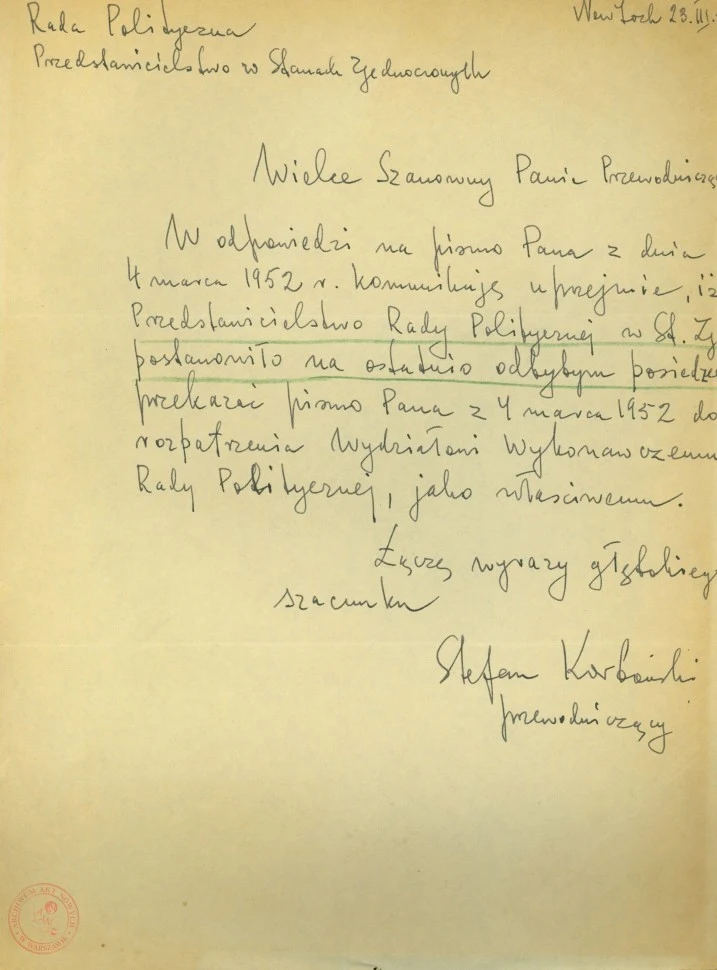 Rada Polityczna
New York 23.III.
Przedstawicielstwo w Stanach Zjednoczonych
Wielce Szanowny Panie Przewodnicząc
W odpowiedzi na pismo Pana z dnia
4 marca 1952 r. komunikuję uprzejmie, iż
Przedstawicielstwo Rady Politycznej w St. Zj
postanowiło na ostatnio odbytym posiedze
przekazać pismo Pana z 4 marca 1952 do
rozpatrzenia Wydziałowi Wykonawczemu
Rady Politycznej, jako właściwemu.
Łączę wyrazy głębokieg
szacunku
Stefan Korboński
przewodniczący
ARCHIWUM AKT NOWYCH
W WARSZAWIE